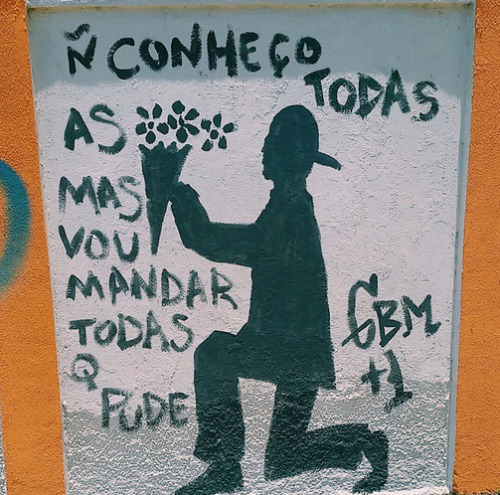 Ñ CONHEÇO
TODAS
AS
MAS
VOU
MANDAR
TODAS
Q
PUDE
GBM
+1